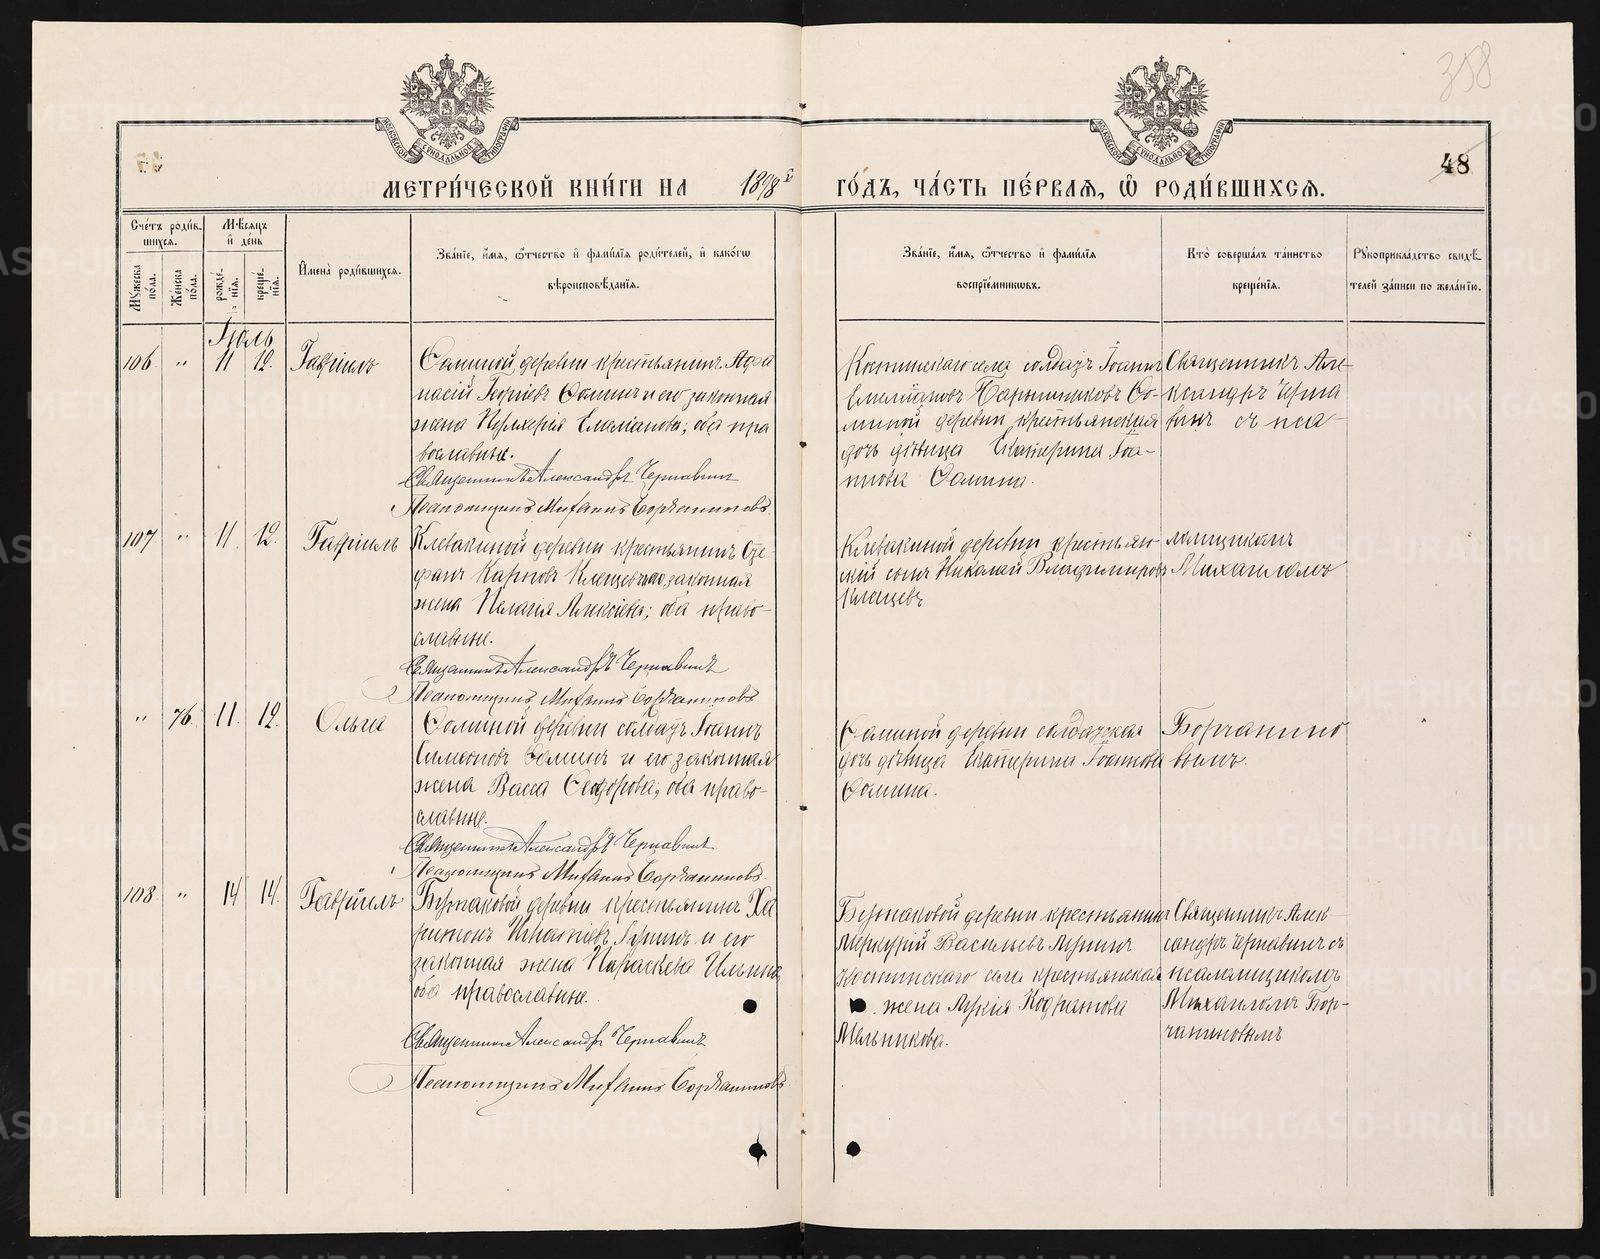 358
48
МЕТРИ́ЧЕСКОЙ КНИ́ГИ НА 1898 ГО́ДЪ, ЧА́СТЬ ПЕ́РВАЯ, Ѡ РОДИ́ВШИХСЯ.
Сче́тъ роди́в-
шихся.
Мѣ́сяцъ
и́ де́нь
Му́жеска по́ла.
Же́нска по́ла.
рожде́-
нїя.
креще́-
нїя.
И҆мена̀ роди́вшихся.
Зва́нїе, и҆́мя, ѻ҆́тчество и҆ фами́лїя роди́телей, и҆ како́гѡ
вѣроисповѣ́данїя.
Зва́нїе, и҆́мя, ѻ҆́тчество и҆ фами́лїя
воспрїе́мникѡвъ.
Кто̀ соверша́лъ та́инство
креще́нїя.
Рукоприкла́дство свидѣ́-
телей за́писи по жела́нїю.
Іюль
106 " 11 12. Гавріилъ
Соминой деревни крестьянинъ Афа
насій Георгіевъ Соминъ и его законная
жена Пульхерія Емеліанова; оба пра
вославные.
Священникъ Александръ Чернавинъ
Псаломщикъ Михаилъ Борчаниновъ
Костинскаго села солдатъ Іоаннъ
Емеліановъ Барышниковъ Со-
миной деревни крестьянская
дочь дѣвица Екатерина Іоа-
ннова Сомина.
Священникъ Але-
ксандръ Черна
винъ съ пса-
107 " 11 12. Гавріилъ
Клевакиной деревни крестьянинъ Сте-
фанъ Карповъ Клещевъ и его законная
жена Пелагія Алексіева; оба право-
славные.
Священникъ Александръ Чернавинъ
Псаломщикъ Михаилъ Борчаниновъ
Клевакиной деревни крестьян-
скій сынъ Николай Владиміровъ
Клещевъ
ломщикомъ
Михаиломъ
" 76. 11. 12. Ольга
Соминой деревни солдатъ Іоаннъ
Симеоновъ Соминъ и его законная
жена Васса Ѳеодорова; оба право-
славные.
Священникъ Александръ Чернавинъ
Псаломщикъ Михаилъ Борчаниновъ
Соминой деревни солдатская
дочь дѣвица Екатерина Іоаннова
Сомина.
Борчанино
вымъ.
108 " 14 14. Гавріилъ
Бучаковой деревни крестьянинъ Ха
ритонъ Игнатіевъ и его
законная жена Параскева Ильина
оба православные.
Священникъ Александръ Чернавинъ
Псаломщикъ Михаилъ Борчаниновъ
деревни крестьянинъ
Меркурій Васильевъ
Костинскаго села крестьянская
жена Лукія Кодратова
Мельникова.
Священникъ Алек-
сандръ Чернавинъ съ
псаломщикомъ
Михаиломъ Бор-
чаниновымъ